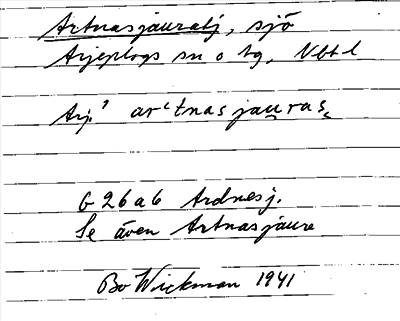 Artnasjauratj, sjö
Arjeplogs sn o tg, Vbtl
Arj. ar'tnasjauras
G 26 a 6 Ardnesj.
Se även Artnasjaure
Bo Wickman 1941